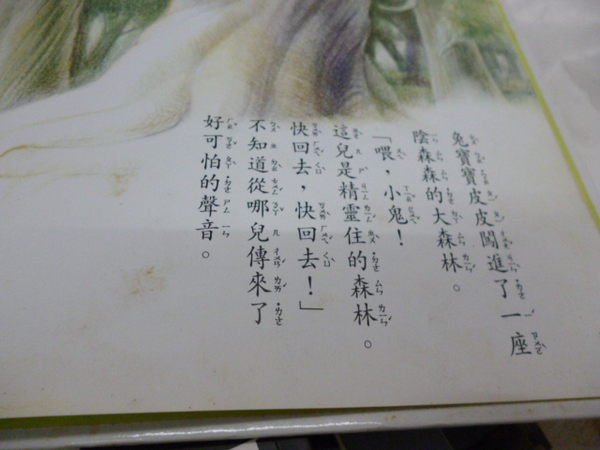 兔寶寶皮皮闖進了一座
陰森森的大森林。
「喂，小鬼！
這兒是精靈住的森林。
快回去，快回去！」
不知道從哪兒傳來了
好可怕的聲音。